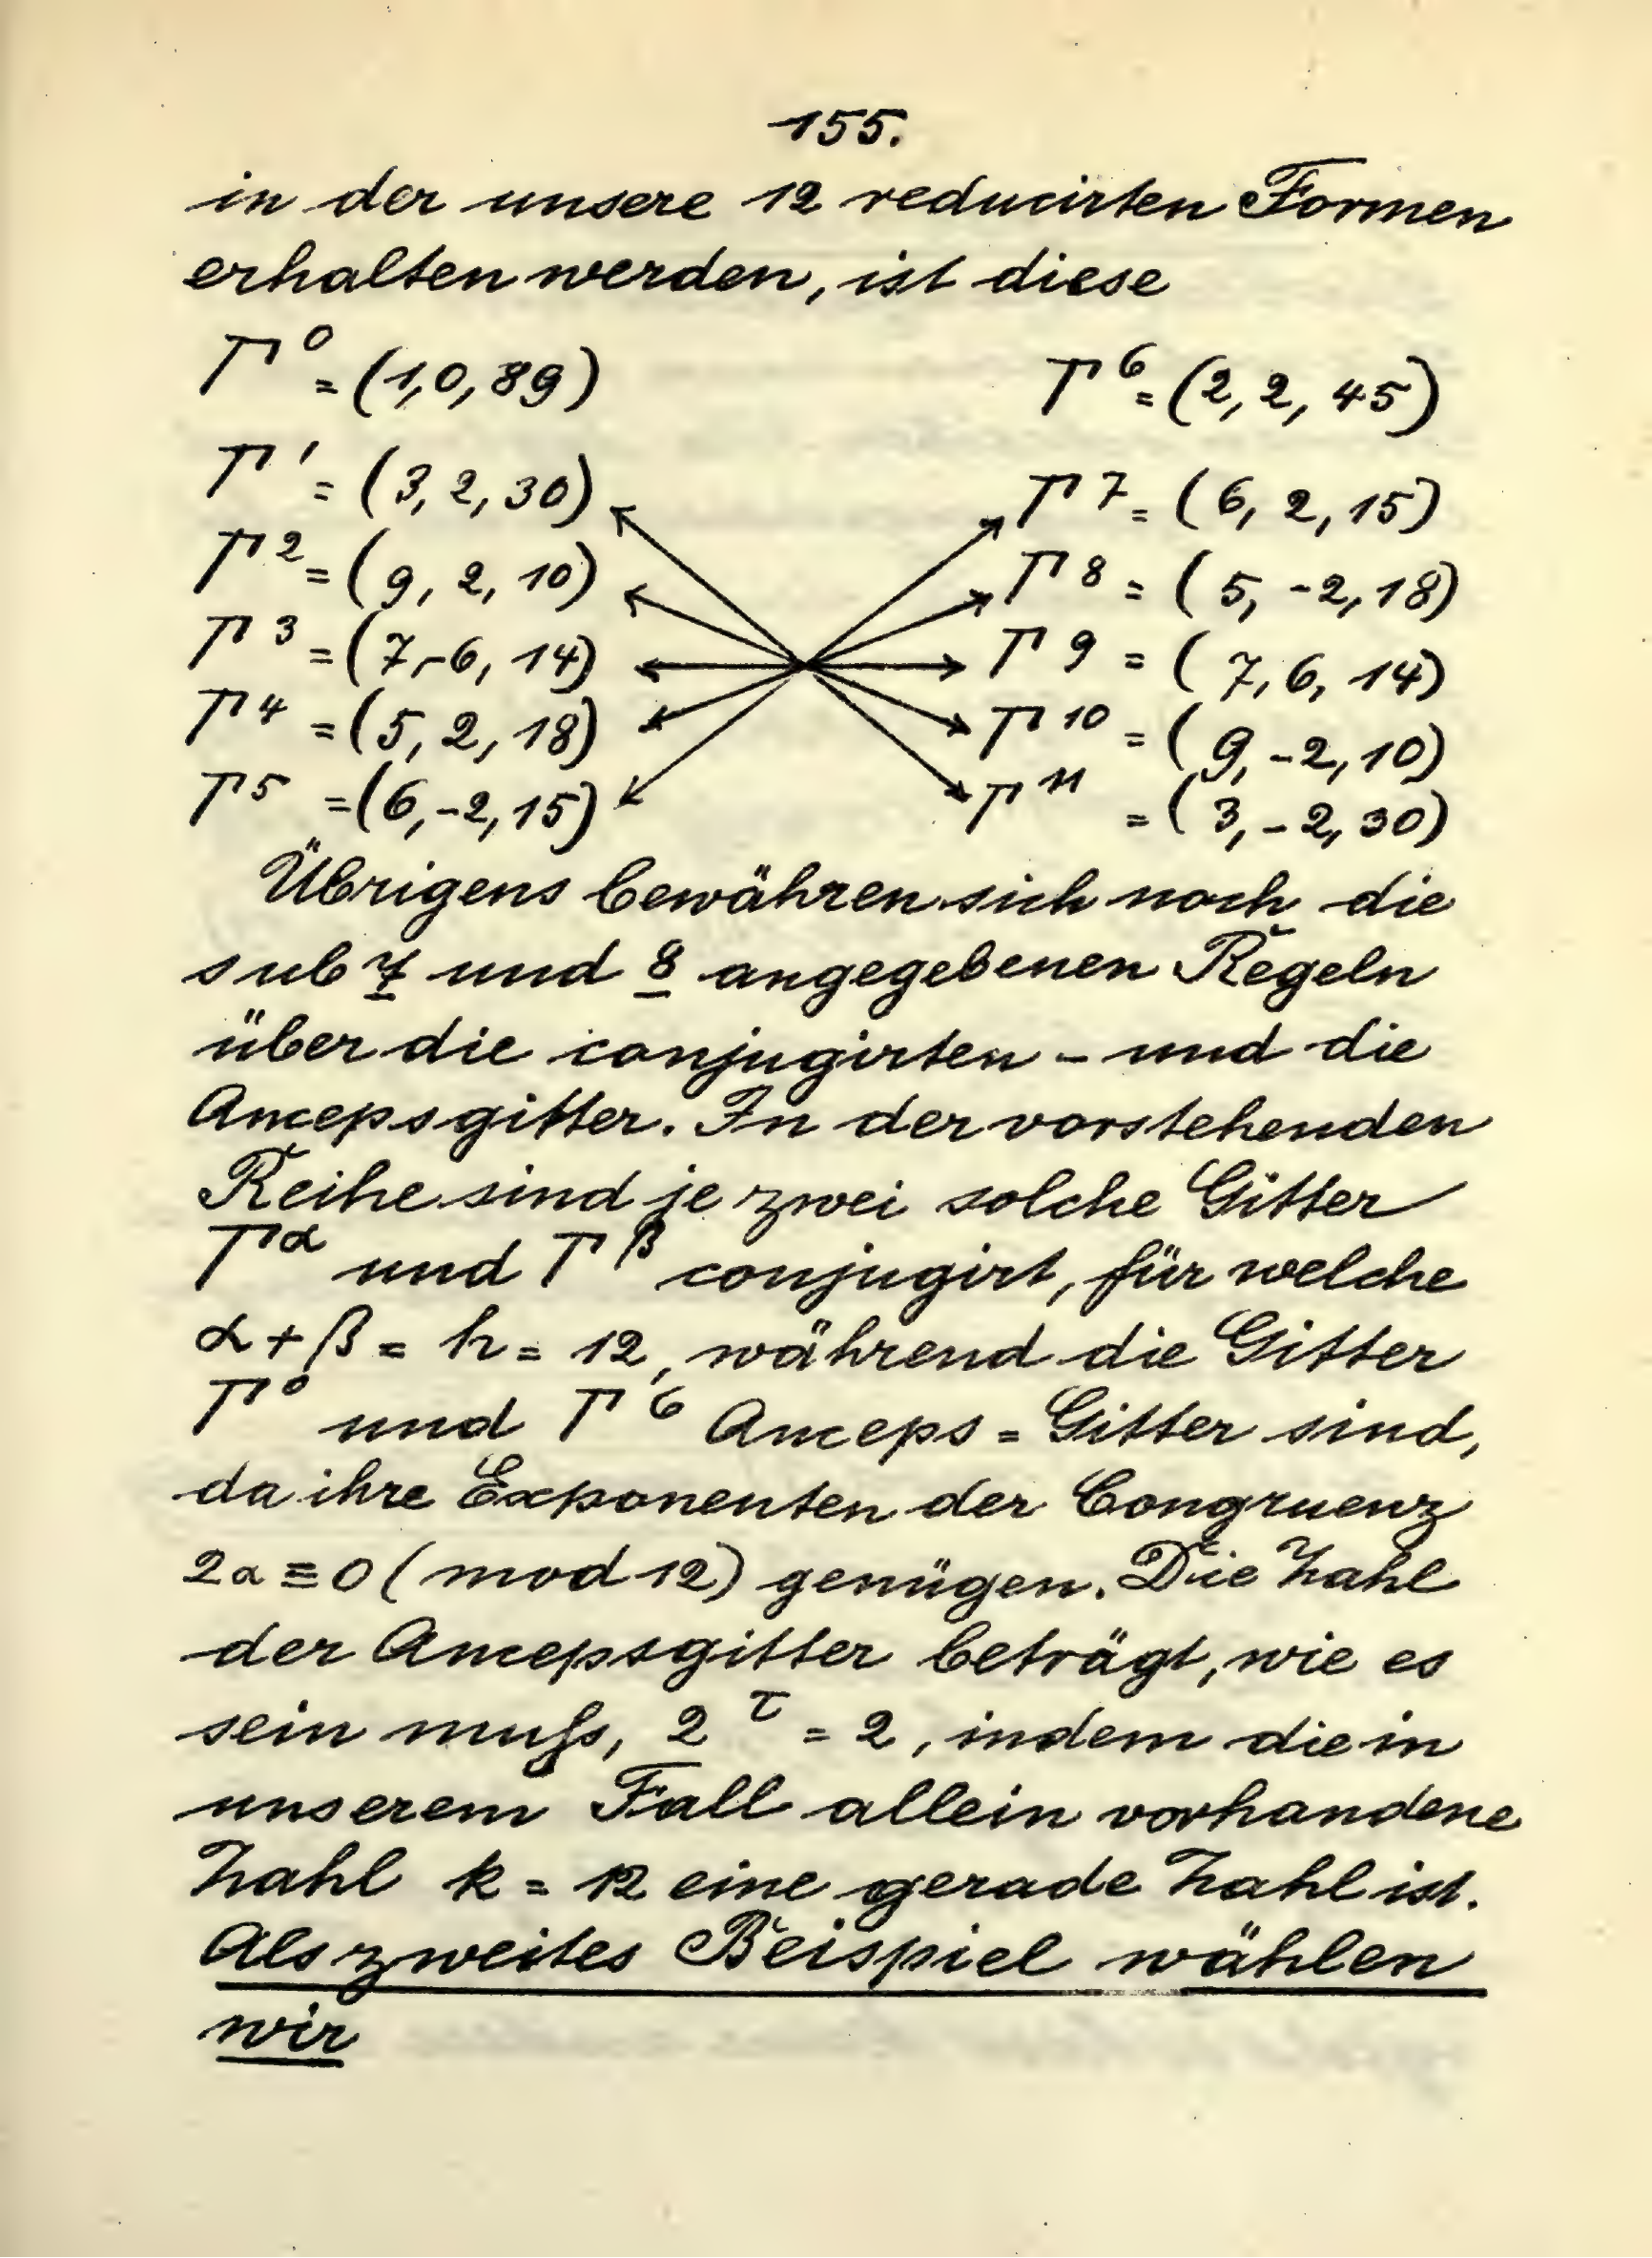 155.
in der unsere 12 reducirten Formen
erhalten werden, ist diese
Γ⁰ = (1,0,89) Γ⁶ = (2, 2, 45)
Γ¹ = (3, 2, 30) Γ⁷ = (6, 2, 15)
Γ² = (9, 2, 10) Γ⁸ = (5, -2, 18)
Γ³ = (7, -6, 14) Γ⁹ = (7, 6, 14)
Γ⁴ = (5, 2, 18) Γ¹⁰ = (9, -2, 10)
Γ⁵ = (6, -2, 15) Γ¹¹ = (3, -2, 30)
Übrigens bewähren sich noch die
sub 7 und 8 angegebenen Regeln
über die conjugirten - und die
Ancepsgitter. In der vorstehenden
Reihe sind je zwei solche Gitter
Γ^α und Γ^β conjugirt, für welche
α + β = h = 12, während die Gitter
Γ⁰ und Γ⁶ Anceps = Gitter sind,
da ihre Exponenten der Congruenz
2α ≡ 0 (mod 12) genügen. Die Zahl
der Ancepsgitter beträgt, wie es
sein muſs, 2^τ = 2, indem die in
unserem Fall allein vorhandene
Zahl k = 12 eine gerade Zahl ist.
Als zweites Beispiel wählen
wir